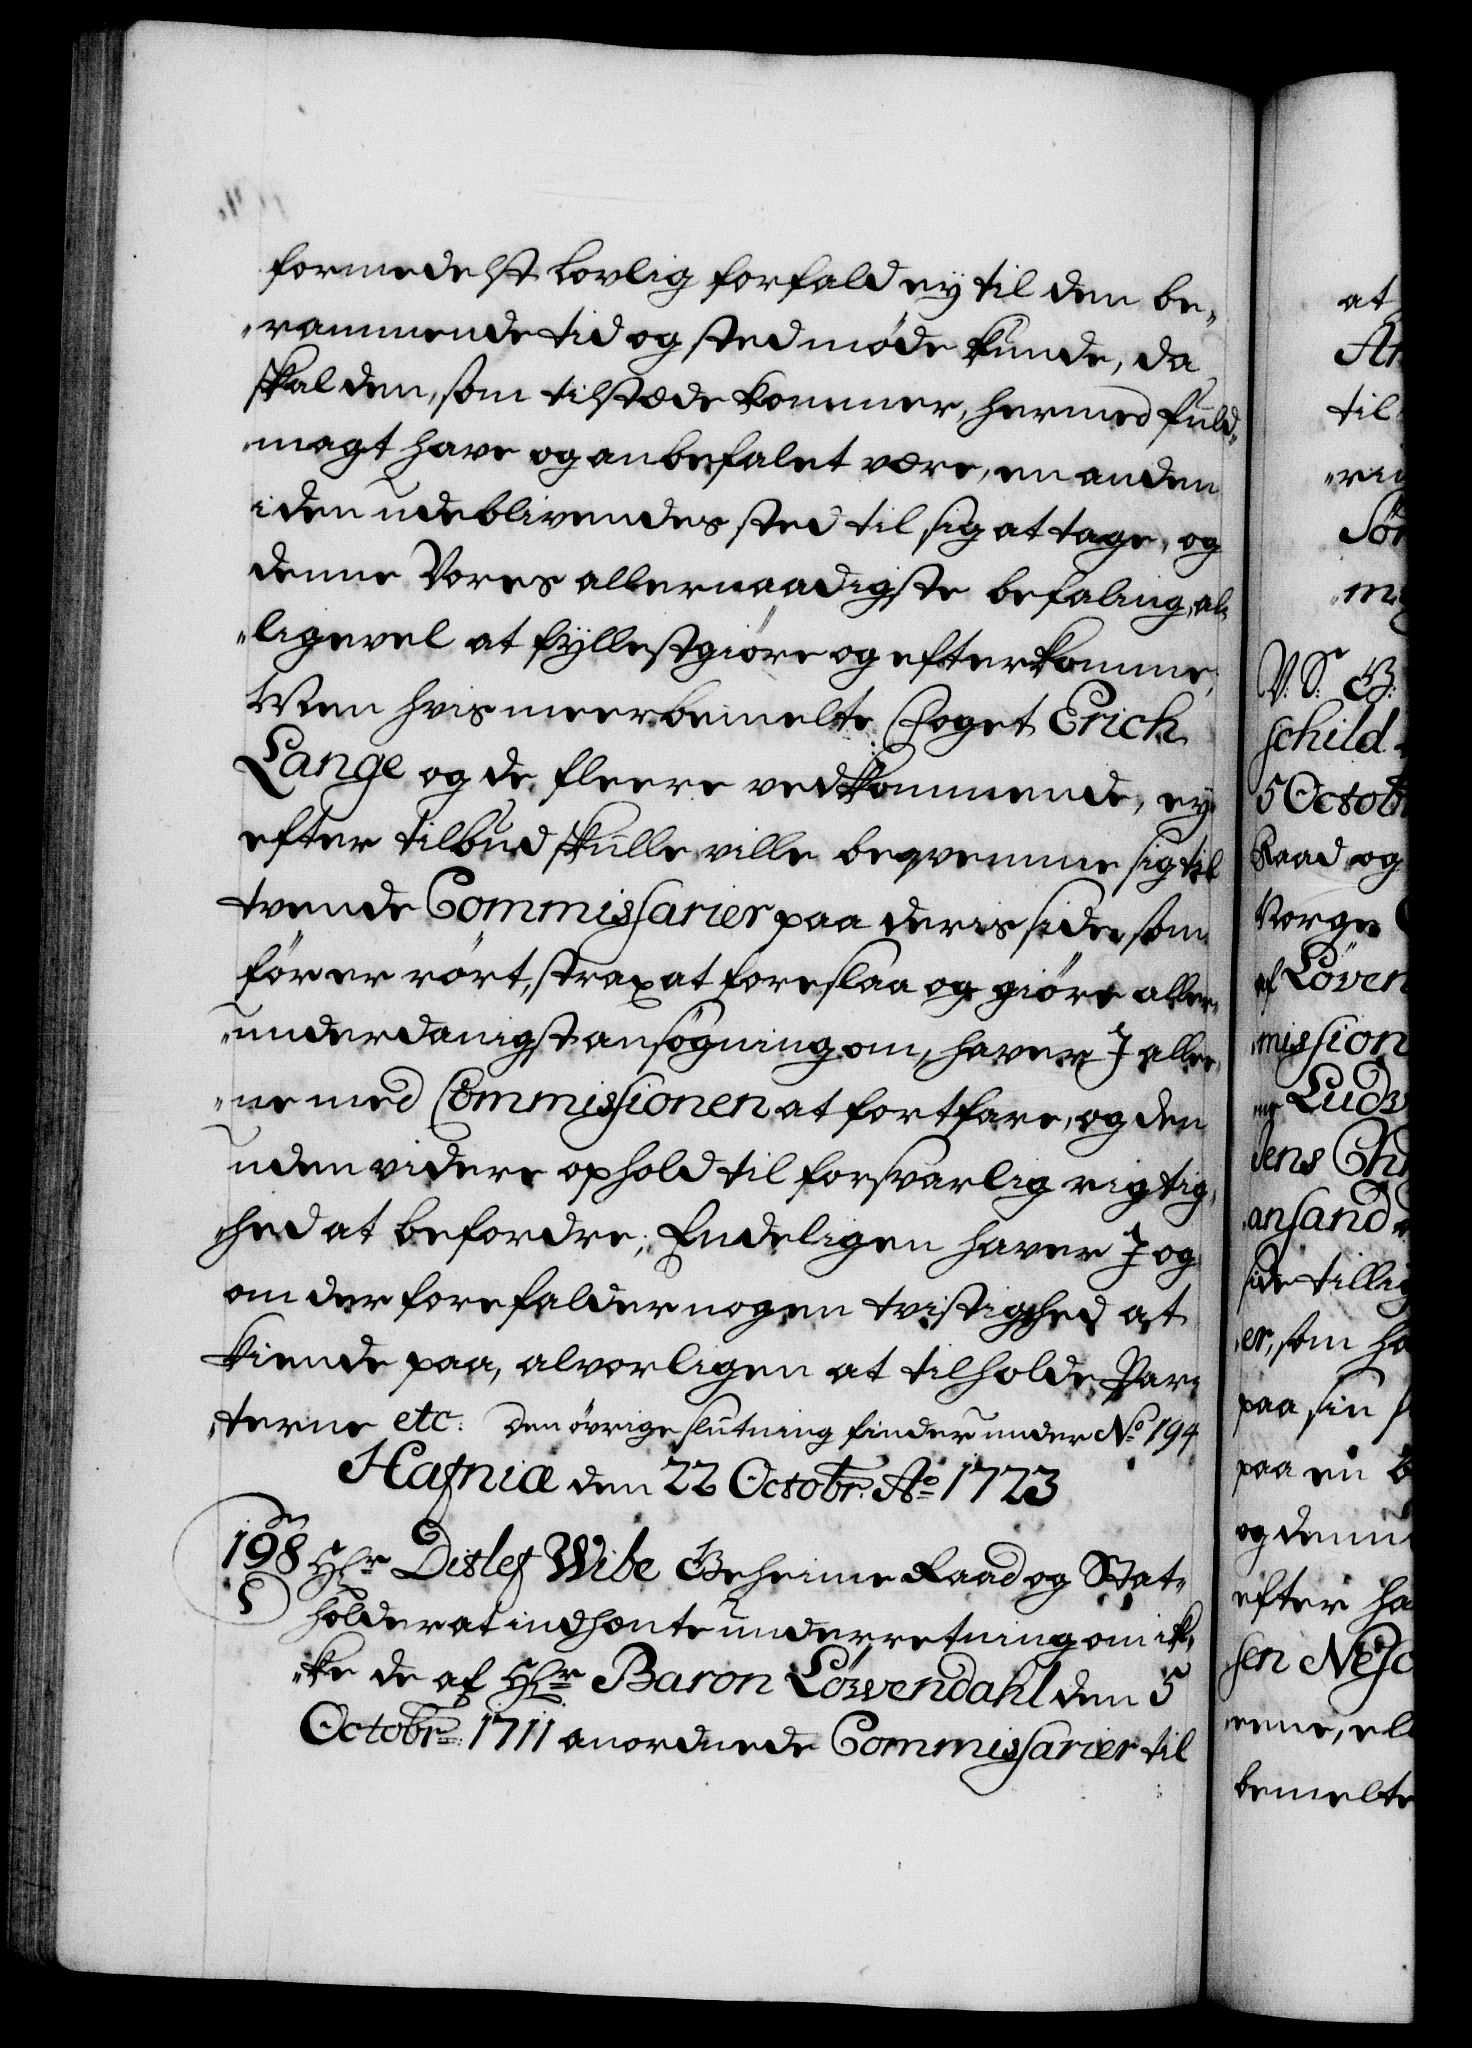 formedelst Lovlig forfald ey til den be„
„rammende tid og sted møde kunde, da
skal den, som tilstæde kommer, hermed fuld„
magt have og anbefalet være, en anden
i den udeblivendes sted til sig at tage, og
denne Vores allernaadigste befaling, al„
„ligevel at fyllestgiøre og efterkomme,
Men hvis meerbemelte Foget Erich
Lange og de fleere vedkommende, ey
efter tilbud skulle ville beqvemme sig til
tvende Commissarier paa deris side, som
før er rørt, strax at foreslaa og giøre aller„
„underdanigst ansøgning om, haver I alle„
„ne med Commissionen at fortfare, og den
uden videre ophold til forsvarlig rigtig„
„hed at befordre; Endeligen haver I og
om der forefalder nogen tvistighed at
kiende paa, alvorligen at tilholde Par„
„terne etc: Den øvrige slutning findes under No 194
Hafniæ den 22 Octobr: Ao 1723
198 Hr Ditlef Wibe Geheime Raad og Stat„
holder at indhente underretning om ik„
„ke de af Hr Baron Löwendahl den 5
Octobr: 1711 anordnede Commissarier til
at
til
V: S: G:
schild
5 Octobr
Raad og
Norge
af Löven
mission
Ludv
Jens Ch
ansand
side tillig
er, som ha
paa sin
paa en
og denne
efter ha
sen Nesc
eene, el
bemelte